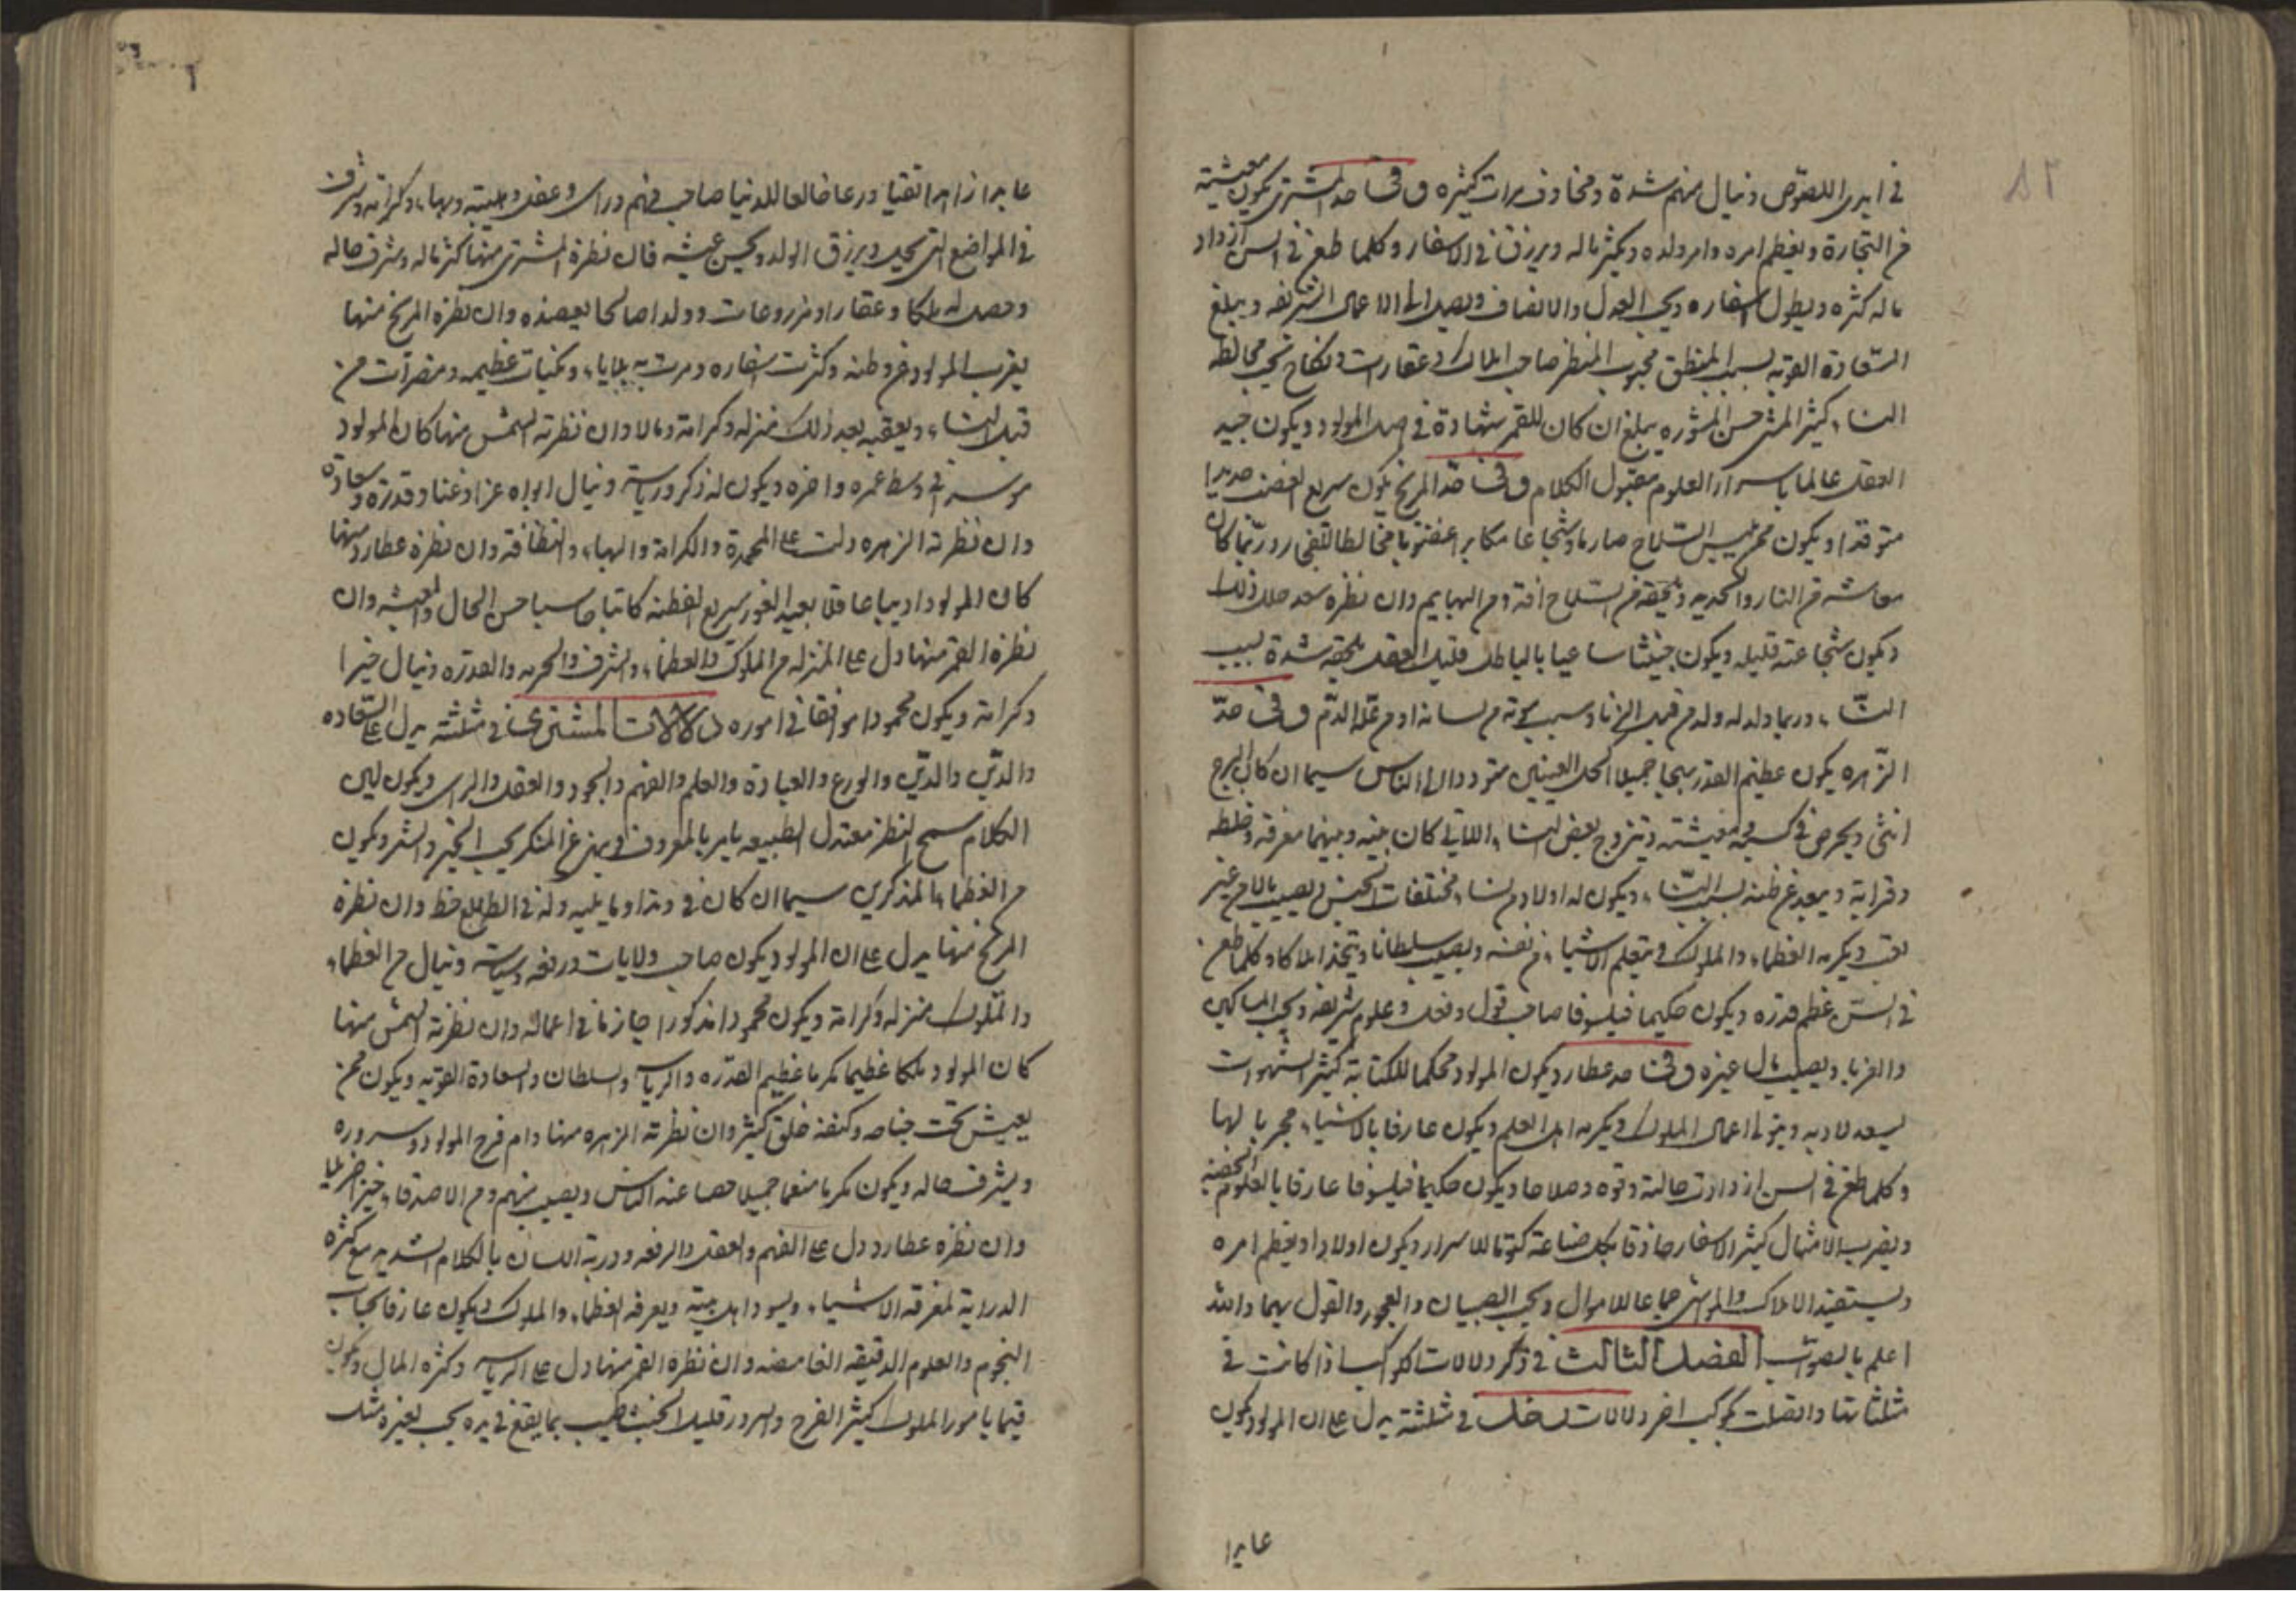 ٨٢
في ايدى اللصوص وينال منهم شدة ومخاوف مرات كثيره وفى حد المشترى يكون معيشته
من التجارة ويعظم امره وامر ولده ويكثر ماله ويرزق في الاسفار وكلما طعن في السن ازداد
ماله كثره ويطول اسفاره ويحب العدل والانصاف ويصير الى الاعمال الشريفه ويبلغ
السعادة القويه بسبب المنطق محبوب المنظر صاحب املاك وعقارات ونكاح يحب مخالطه
النساء كثير المشى حسن المشوره يبلغ ان كان للقمر شهادة في اصل المولود ويكون جيد
العقل عالما باسرار العلوم مقبول الكلام وفى حد المريخ يكون سريع الغضب حديدا
متوقدا ويكون ممن يلبس السلاح صارما وشجاعا مكابرا غضوبا مخالطا للفجار وربما كان
معاشه من النار والحديد وتلحقه من السلاح افة ومن البهايم وان نظره سعد حلل ذلك
ويكون شجاعته قليله ويكون خبيثا ساعيا بالباطل قليل العقل تلحقه شدة بسبب
النساء وربما ولد له ولد من قبل الزنا وسبب موته من لسانه او من علة الدم وفى حد
الزهره يكون عظيم القدر سخيا جميلا اكحل العينين متوددا الى الناس سيما ان كان البرج
انثى ويحرص في كسب معيشته ويتزوج بعض النساء اللاتي كان بينه وبينهما معرفة وخلطه
وقرابة ويبعد عن وطنه بسبب النساء ويكون له اولاد من نساء مختلفات الجنس ويصيب مالا من غير
تعب ويكرمه العظماء والملوك ويتعلم الاشياء من نفسه ويصيب سلطانا ويتخذ املاكا وكلما طعن
في السن عظم قدره ويكون حكيما فيلسوفا صاحب قول وفعل وعلوم شريفه ويحب المساكين
والغربا ويصيب مال غيره وفى حد عطارد يكون المولود محكما للكتابة كثير الشهوات
يسعد لادبه ويتولى اعمال الملوك ويكرمه اهل العلم ويكون عارفا بالاشياء مجربا لها
وكلما طعن في السن ازدادت حالته وقوه وصلاحا ويكون حكيما فيلسوفا عارفا بالعلوم الخفيه
ويضرب الامثال كثير الاسفار حاذقا بكل صناعة كتوما للاسرار ويكون اولادا ويعظم امره
ويستفيد الاملاك والمواشى جماعا للاموال ويحب الصبيان والفجور والقول بهما والله
اعلم بالصواب الفصل الثالث في ذكر دلالات الكواكب اذا كانت في
مثلثاتها واتصلت بكوكب اخر دلالات زحل في مثلثته يدل على ان المولود يكون
عابدا
عابدا زاهدا تقيا ورعا خالعا للدنيا صاحب فهم وراى وعقل وهيبة وبهاء وكرامه وشرف
في المواضع التى يحل ويرزق الولد ويحسن عيشه فان نظره المشترى منها كثر ماله وشرف حاله
وحصل له ملكا وعقارا ومزروعات وولدا صالحا يعضده وان نظره المريخ منها
يغرب المولود عن وطنه وكثرت اسفاره ومرت به بلايا ونكبات عظيمه ومضرات من
قبل النساء ويعقبه بعد ذلك منزله وكرامة ومالا وان نظرته الشمس منها كان المولود
موسرا في وسط عمره واخره ويكون له ذكر ورياسة وينال ابواه عزا وغنا وقدرة وسعادة
وان نظرته الزهره دلت على المحمدة والكرامة والبهاء والنظافة وان نظره عطارد منها
كان المولود اديبا عاقلا بعيد الغور سريع الفطنه كاتبا حاسبا حسن الحال والمعيشه وان
نظره القمر منها دل على المنزله من الملوك والعظماء والشرف والحريه والقدره وينال خيرا
وكرامة ويكون محمودا موافقا في اموره دلالات المشترى في مثلثته يدل على السعاده
والدين والورع والعبادة والعلم والفهم والجود والعقل والراى ويكون لين
الكلام سمح النظر معتدل الطبيعه يامر بالمعروف وينهى عن المنكر يحب الخير والشر ويكون
من العظماء المذكرين سيما ان كان في وتد او ما يليه وله في الطالع حظ وان نظره
المريخ منها يدل على ان المولود يكون صاحب ولايات ورفعه وسياسة وينال من العظماء
والملوك منزله وكرامة ويكون محمودا مذكورا حازما في اعماله وان نظرته الشمس منها
كان المولود ملكا عظيما مكرما عظيم القدره والرياسه والسلطان والسعادة القويه ويكون ممن
يعيش تحت جناحه وكنفه خلق كثير وان نظرته الزهره منها دام فرح المولود وسروره
ويشرف حاله ويكون مكرما منعما جميلا عنه الناس ويصيب منهم ومن الاصدقاء خيرا جزيلا
وان نظره عطارد دل على الفهم والعقل والرفعه ودربة اللسان بالكلام الشديد مع كثرة
الدراية لمعرفة الاشياء ويسود اهل بيته ويعرفه العظماء والملوك ويكون عارفا بحساب
النجوم والعلوم الدقيقه الغامضه وان نظره القمر منها دل على الرياسه وكثره المال ويكون
قيما بامور الملوك كثير الفرح والسرور قليل الخبث طيب بما يقع في يده يحب لغيره مثل